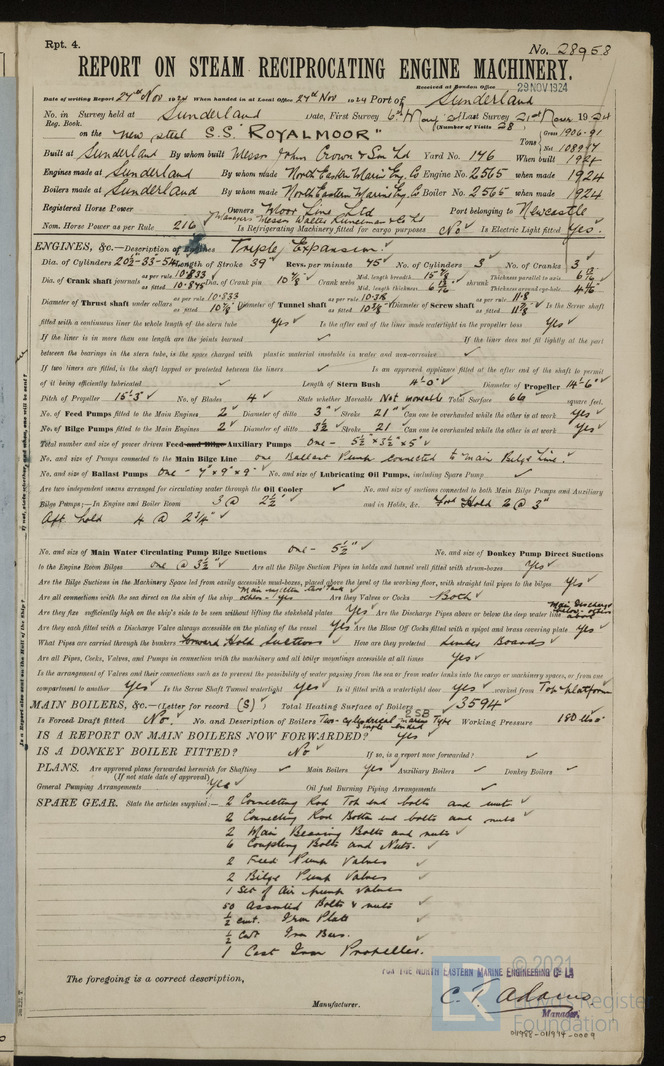 Rpt. 4.
No. 28958
REPORT ON STEAM RECIPROCATING ENGINE MACHINERY.
Received at London Office 29 NOV 1924
Date of writing Report 27th Nov 1924 When handed in at Local Office 27th Nov 1924 Port of Sunderland
No. in Survey held at Sunderland Date, First Survey 6th May 24 Last Survey 21st Novr 1924
Reg. Book. (Number of Visits 28)
on the "new steel S.S. "ROYALMOOR" Tons Gross 1906.91 Net
Built at Sunderland By whom built Messrs John Crown & Son Ltd Yard No. 146 When built 1924
Engines made at Sunderland By whom made North Eastern Marine Eng. Co Engine No. 2565 when made 1924
Boilers made at Sunderland By whom made North Eastern Marine Eng. Co Boiler No. 2565 when made 1924
Registered Horse Power Owners Moor Line Ltd Port belonging to Newcastle
Managers Messrs Walter Runciman & Co Ltd
Nom. Horse Power as per Rule 216 Is Refrigerating Machinery fitted for cargo purposes No Is Electric Light fitted Yes
ENGINES, &c.—Description of Engines Triple Expansion
Dia. of Cylinders 20½-33-54 Length of Stroke 39" Revs. per minute 75 No. of Cylinders 3 No. of Cranks 3
Dia. of Crank shaft journals as per rule 10.833 as fitted 10.875 Dia. of Crank pin 10⅞ Crank webs Mid. length breadth 15⅞ Mid. length thickness shrunk Thickness parallel to axis Thickness around eye-hole
Diameter of Thrust shaft under collars as per rule 10.833 as fitted 10⅞ Diameter of Tunnel shaft as per rule 10.318 as fitted 10⅜ Diameter of Screw shaft as per rule 11.8 as fitted 11⅞ Is the Screw shaft
fitted with a continuous liner the whole length of the stern tube Yes Is the after end of the liner made watertight in the propeller boss Yes
If the liner is in more than one length are the joints burned If the liner does not fit tightly at the part
between the bearings in the stern tube, is the space charged with plastic material insoluble in water and non-corrosive
If two liners are fitted, is the shaft lapped or protected between the liners Is an approved appliance fitted at the after end of the shaft to permit
of it being efficiently lubricated Length of Stern Bush 4'-0" Diameter of Propeller 14'-6"
Pitch of Propeller 15'-3" No. of Blades 4 State whether Moveable Not moveable Total Surface 66 square feet.
No. of Feed Pumps fitted to the Main Engines 2 Diameter of ditto 3" Stroke 21" Can one be overhauled while the other is at work Yes
No. of Bilge Pumps fitted to the Main Engines 2 Diameter of ditto 3½ Stroke 21 Can one be overhauled while the other is at work Yes
Total number and size of power driven Feed and Bilge Auxiliary Pumps One - 5½" × 3½" × 5"
No. and size of Pumps connected to the Main Bilge Line one Ballast Pump connected to main Bilge Line.
No. and size of Ballast Pumps One - 7" × 9" × 9" No. and size of Lubricating Oil Pumps, including Spare Pump
Are two independent means arranged for circulating water through the Oil Cooler No. and size of suctions connected to both Main Bilge Pumps and Auxiliary
Bilge Pumps;—In Engine and Boiler Room 3 @ 2½" and in Holds, &c. Ford Hold 2 @ 3"
Aft hold 4 @ 2¾"
No. and size of Main Water Circulating Pump Bilge Suctions one - 5½" No. and size of Donkey Pump Direct Suctions
to the Engine Room Bilges one @ 3½" Are all the Bilge Suction Pipes in holds and tunnel well fitted with strum-boxes Yes
Are the Bilge Suctions in the Machinery Space led from easily accessible mud-boxes, placed above the level of the working floor, with straight tail pipes to the bilges Yes
Are all connections with the sea direct on the skin of the ship others Yes Are they Valves or Cocks Both
Are they fixed sufficiently high on the ship's side to be seen without lifting the stokehold plates Yes Are the Discharge Pipes above or below the deep water line Main Discharge below - others above
Are they each fitted with a Discharge Valve always accessible on the plating of the vessel Yes Are the Blow Off Cocks fitted with a spigot and brass covering plate Yes
What Pipes are carried through the bunkers Forward Hold Suctions How are they protected Limber Boards
Are all Pipes, Cocks, Valves, and Pumps in connection with the machinery and all boiler mountings accessible at all times Yes
Is the arrangement of Valves and their connections such as to prevent the possibility of water passing from the sea or from water tanks into the cargo or machinery spaces, or from one
compartment to another Yes Is the Screw Shaft Tunnel watertight Yes Is it fitted with a watertight door Yes worked from Top platform
MAIN BOILERS, &c.—(Letter for record (S)) Total Heating Surface of Boilers 3594
Is Forced Draft fitted No. No. and Description of Boilers Two - cylindrical Marine Type single ended 2SB Working Pressure 180 lbs
IS A REPORT ON MAIN BOILERS NOW FORWARDED? Yes
IS A DONKEY BOILER FITTED? No If so, is a report now forwarded?
PLANS. Are approved plans forwarded herewith for Shafting Main Boilers Yes Auxiliary Boilers Donkey Boilers
(If not state date of approval)
General Pumping Arrangements Yes Oil fuel Burning Piping Arrangements
SPARE GEAR. State the articles supplied:— 2 Connecting Rod Top end bolts and nuts
2 Connecting Rod Bottom end bolts and nuts
2 Main Bearing Bolts and nuts
6 Coupling Bolts and Nuts.
2 Feed Pump Valves
2 Bilge Pump Valves
1 Set of Air pump valves
50 Assorted Bolts & nuts
½ cwt. Iron Plate
½ cwt Iron Bars.
1 Cast Iron Propeller.
The foregoing is a correct description,
FOR THE NORTH EASTERN MARINE ENGINEERING Co. Ld.
C. T. Adams
Manager.
Manufacturer.
© 2021
Lloyd's Register
Foundation
011988-011994-0009